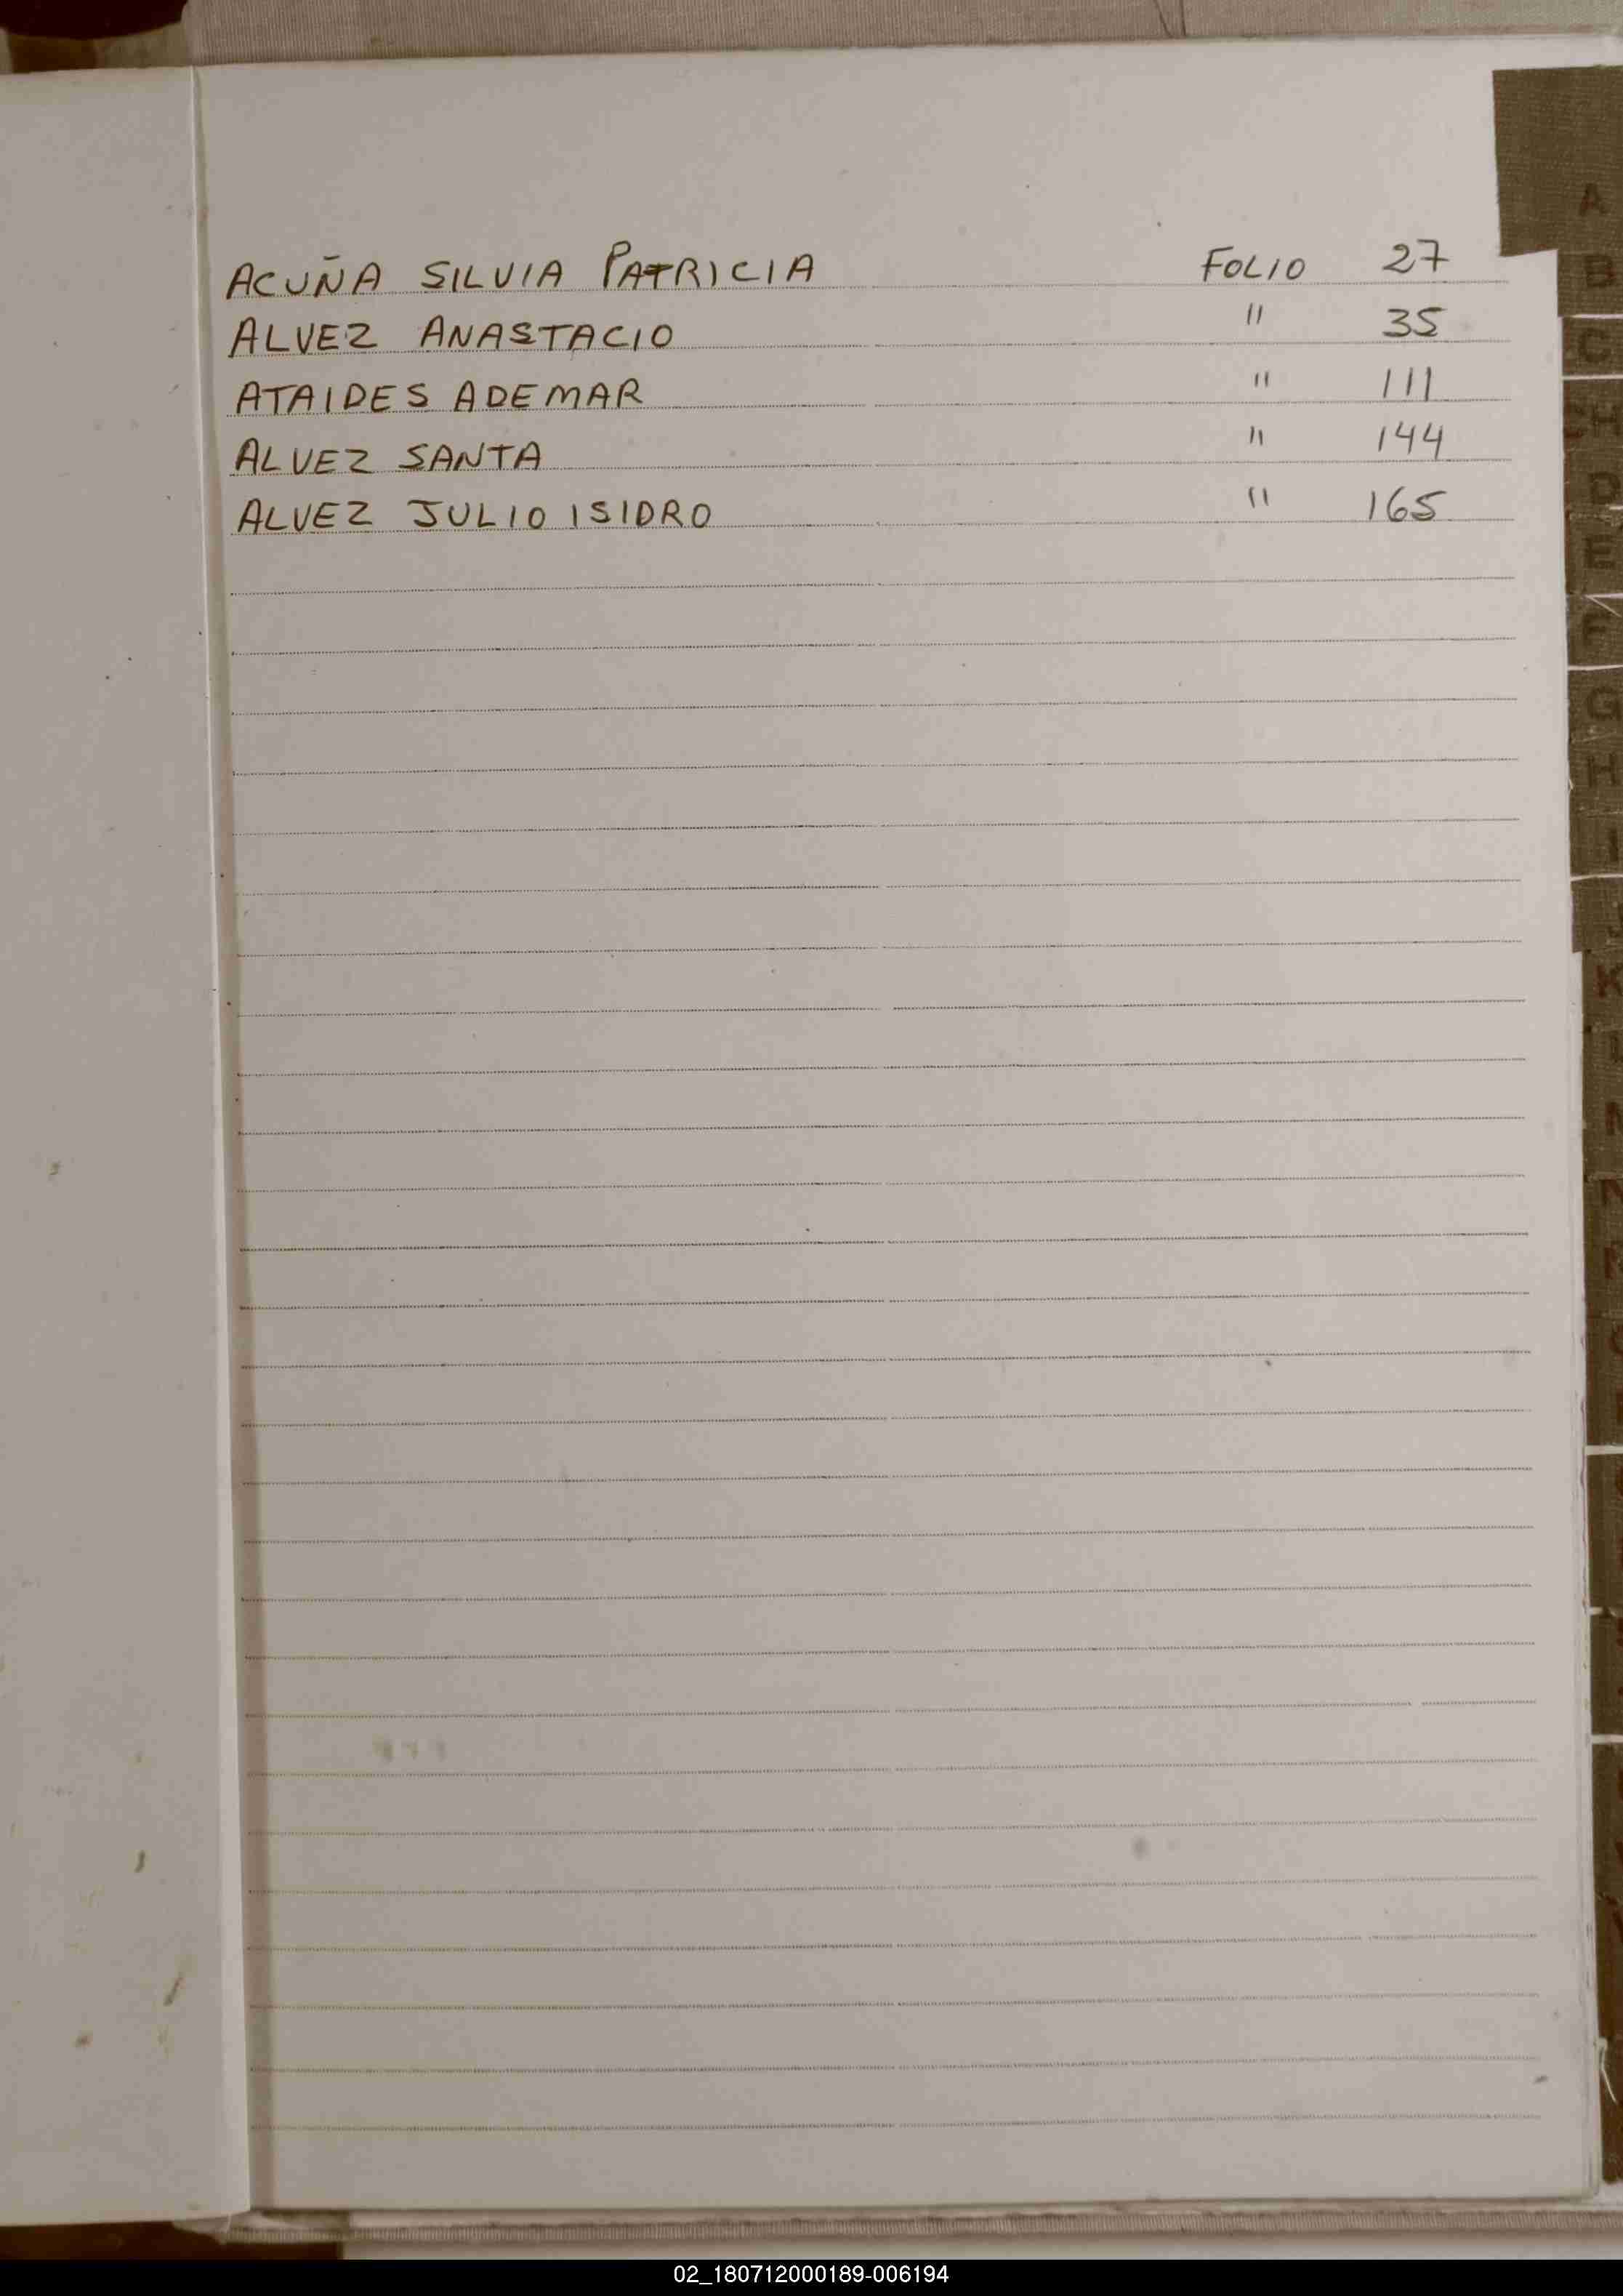 ACUÑA SILVIA PATRICIA FOLIO 27
ALVEZ ANASTACIO " 35
ATAIDES ADEMAR " 111
ALVEZ SANTA " 144
ALVEZ JULIO ISIDRO " 165
A
B
C
CH
D
E
F
G
H
I
02_180712000189-006194